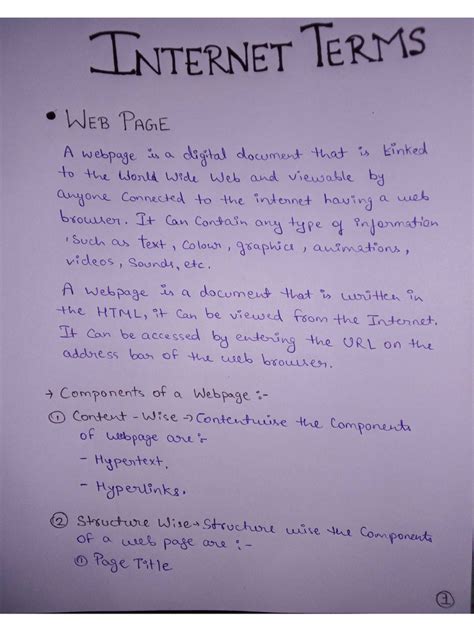 INTERNET TERMS
• WEB PAGE
A webpage is a digital document that is linked
to the World Wide Web and viewable by
anyone connected to the internet having a web
browser. It can contain any type of information
, such as text, colour, graphics, animations,
videos, sounds, etc.
A webpage is a document that is written in
the HTML, it can be viewed from the Internet.
It can be accessed by entering the URL on the
address bar of the web browser.
→ Components of a Webpage :-
① Content - Wise → Contentwise the Components
of webpage are :-
- Hypertext.
- Hyperlinks.
② Structure Wise → Structure wise the Components
of a web page are :-
① Page Title
①